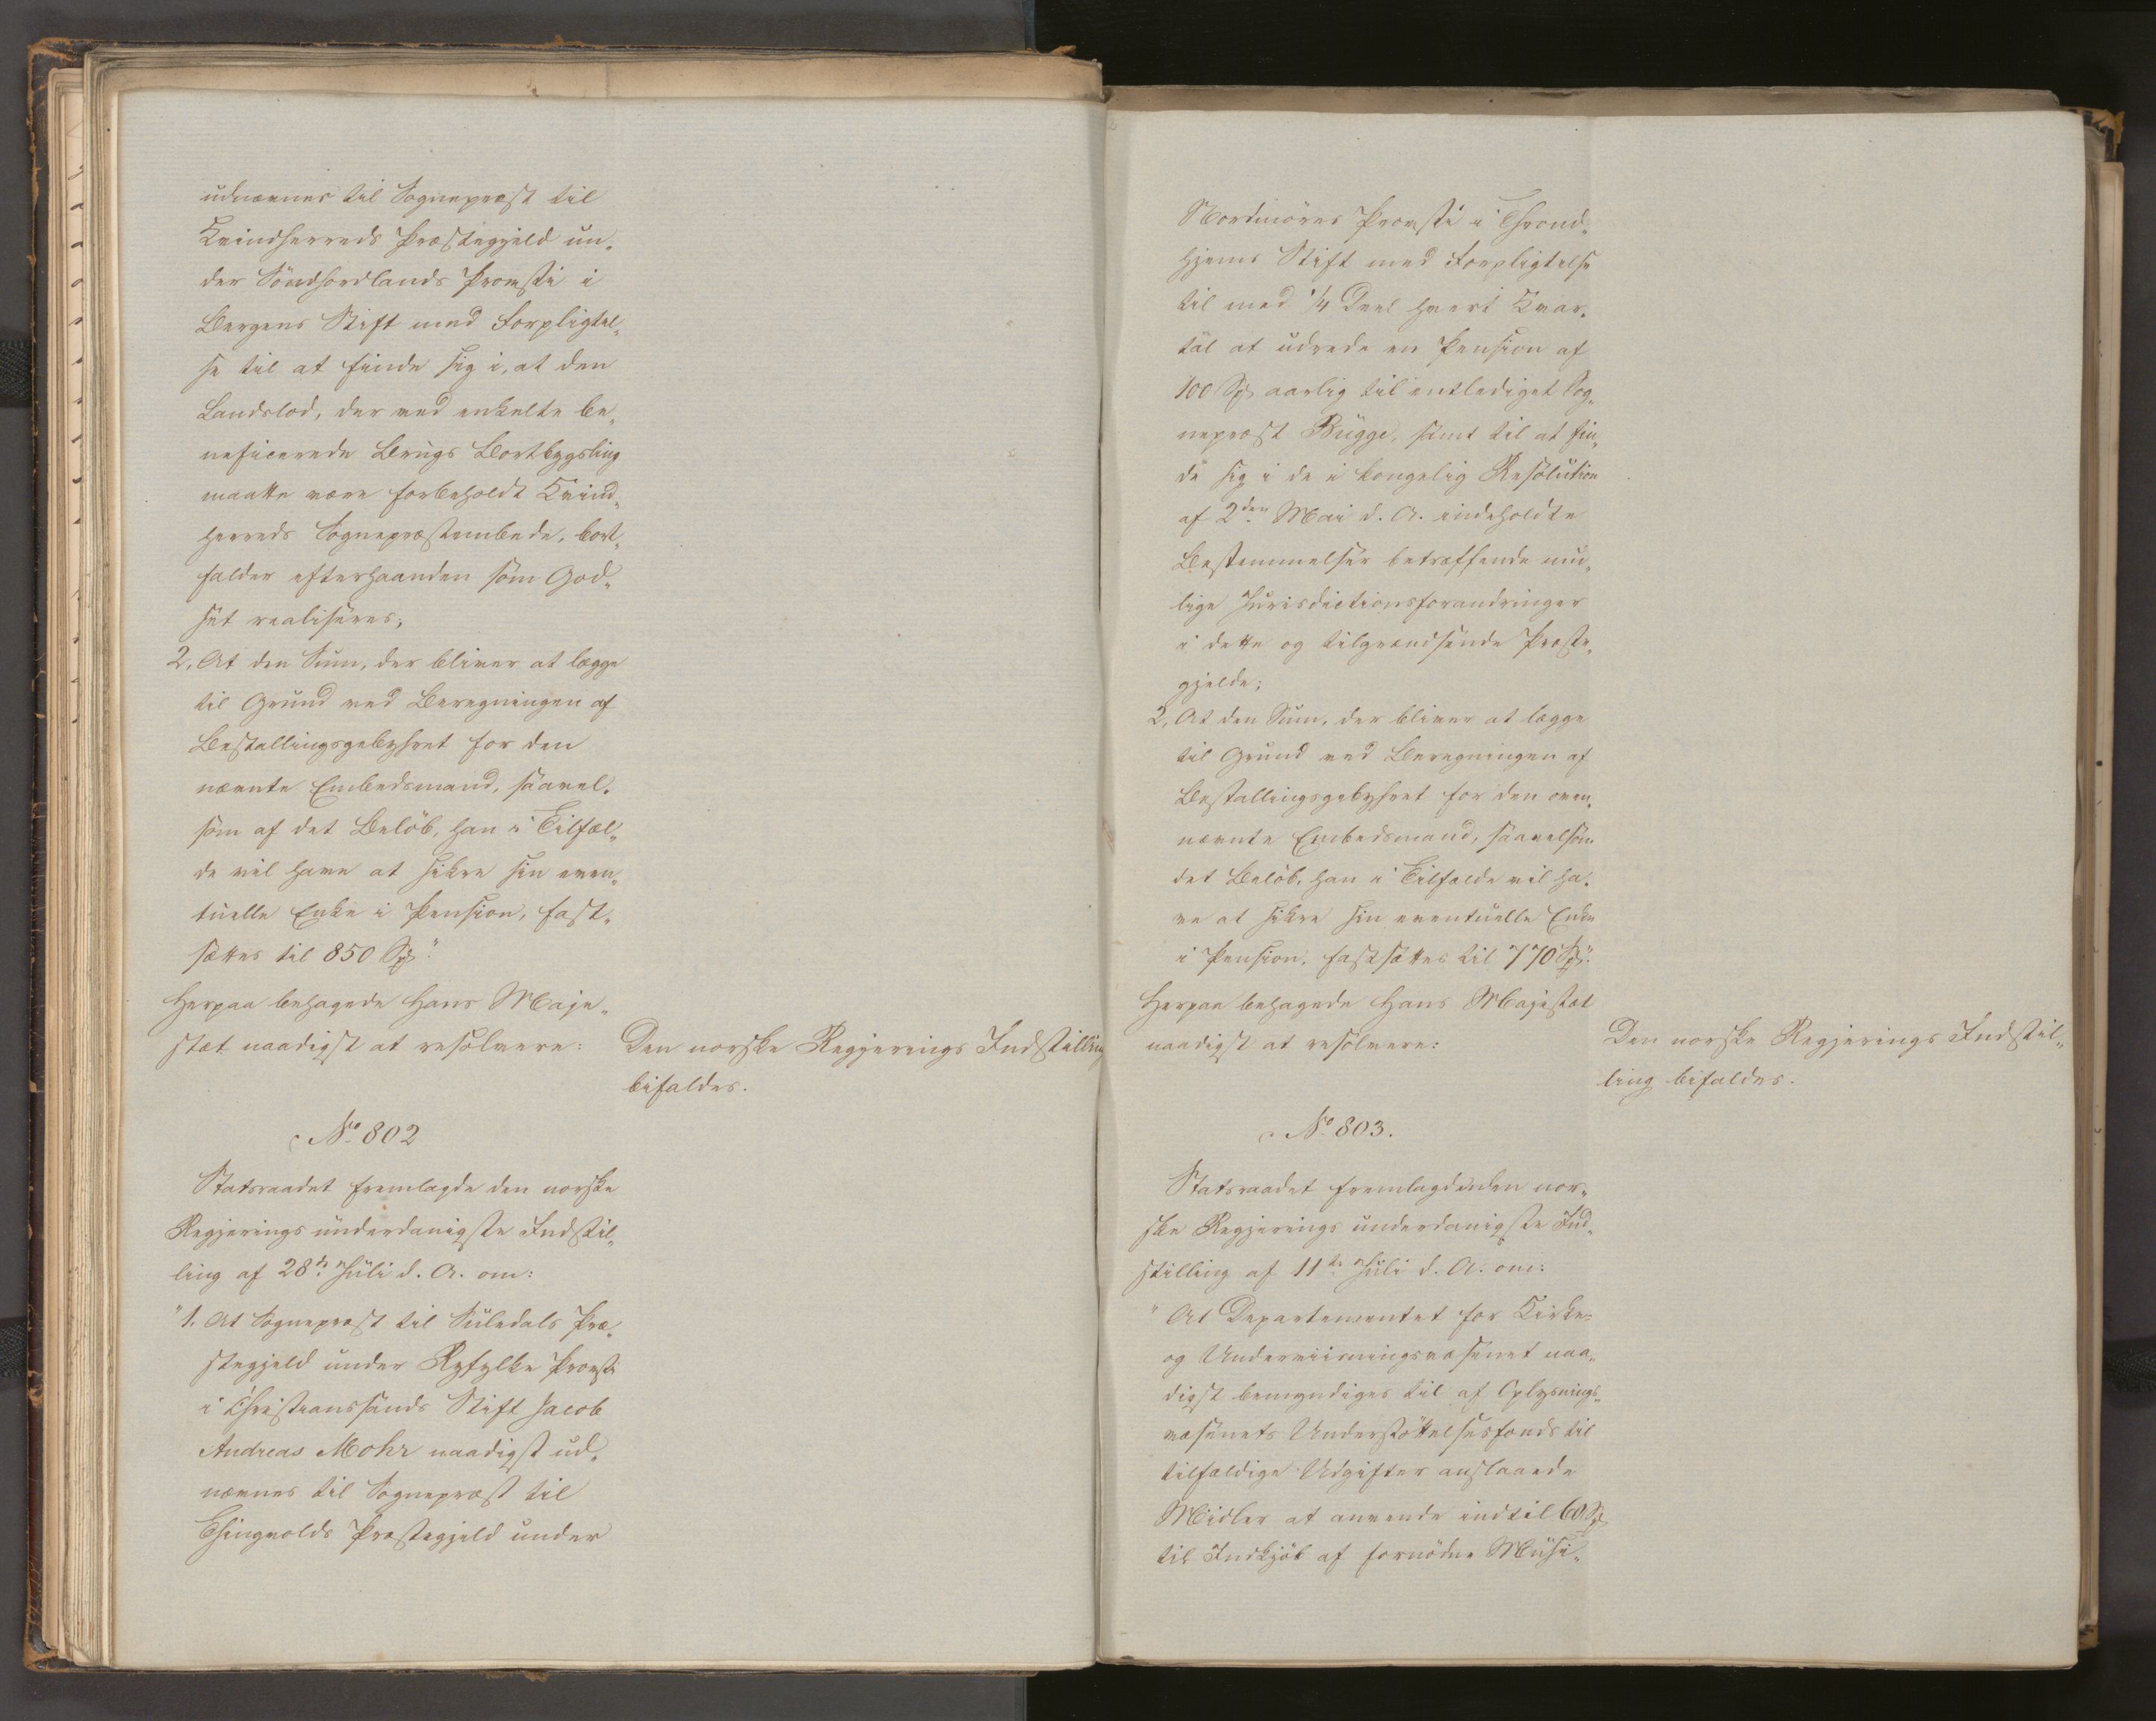 udnævnes til Sognepræst til
Kvindherreds Præstegjeld un„
der Söndhordlands Provsti i
Bergens Stift med Forpligtel„
se til at finde sig i, at den
Landslod, der ved enkelte be„
neficerede Brugs Bortbygsling
maatte være forbeholdt Kvind„
herreds Sognepræstembede, bort„
falder efterhaanden som God„
set realiseres;
2, At den Sum, der bliver at lægge
til Grund ved Beregningen af
Bestallingsgebyhret for den
nævnte Embedsmand, saavel„
som af det Belöb, han i Tilfæl„
de vil have at sikre sin even„
tuelle Enke i Pension, fast„
sættes til 850 Spd."
Herpaa behagede Hans Maje„
stæt naadigst at resolvere:
Den norske Regjerings Indstilling
bifaldes.
No 802
Statsraadet fremlagde den norske
Regjerings underdanigste Indstil„
ling af 28de Juli d. A. om:
"1. At Sognepræst til Suledals Præ„
stegjeld under Ryfylke Provsti
i Christianssands Stift Jacob
Andreas Mohr naadigst ud„
nævnes til Sognepræst til
Thingvolds Præstegjeld under
Nordmöres Provsti i Thrond„
hjems Stift med Forpligtelse
til med 1/4 Deel hvert Kvar„
tal at udrede en Pension af
100 Spd aarlig til entlediget Sog„
nepræst Bugge, samt til at fin„
de sig i de i kongelig Resolution
af 2den Mai d. A. indeholdte
Bestemmelser betræffende mu„
lige Jurisdictionsforandringer
i dette og tilgrændsende Præste„
gjelde;
2, At den Sum, der bliver at lægge
til Grund ved Beregningen af
Bestallingsgebyhret for den oven„
nævnte Embedsmand, saavelsom
det Belöb, han i Tilfælde vil ha„
ve at sikre sin eventuelle Enke
i Pension, fastsættes til 770 Spd."
Herpaa behagede Hans Majestæt
naadigst at resolvere:
Den norske Regjerings Indstil„
ling bifaldes.
No 803.
Statsraadet fremlagde den nor„
ske Regjerings underdanigste Ind„
stilling af 11te Juli d. A. om:
"At Departementet for Kirke-
og Underviisningsvæsenet naa„
digst bemyndiges til af Oplysnings„
væsenets Understöttelsesfonds til
tilfældige Udgifter anslaaede
Midler at anvende indtil 60 Spd
til Indkjöb af fornödne Musi„